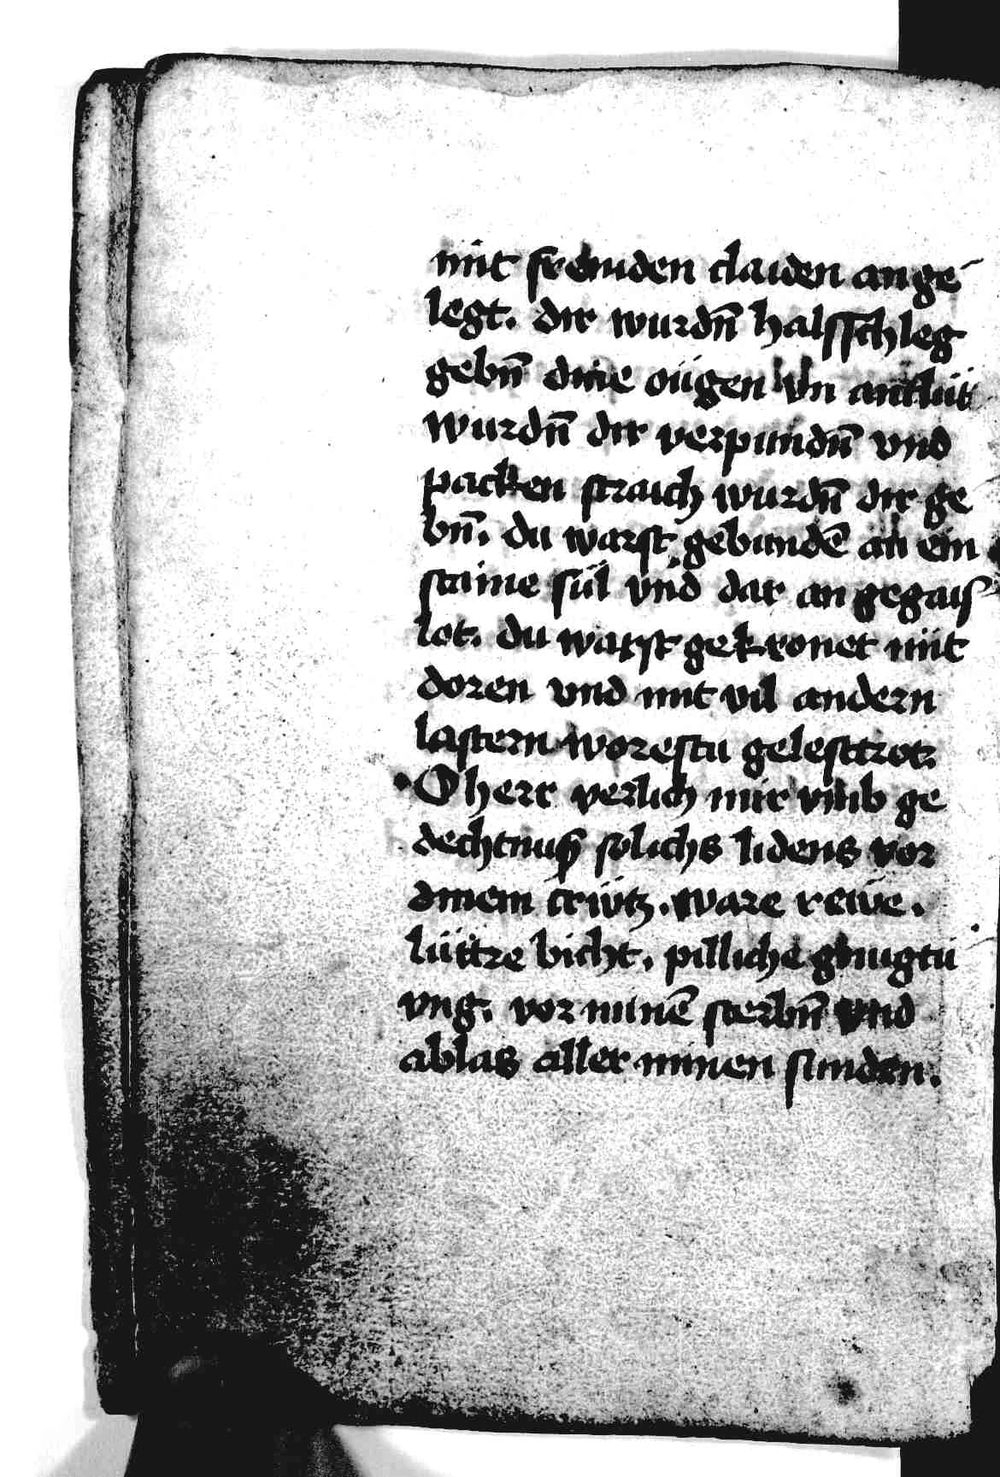 mit fremden claiden ange
legt. dir wurdn̄ halsschleg
gebn̄ dine oügen vn̄ antlüt
wurdn̄ dir verpundn̄ vnd
packen straich wurdn̄ dir ge
bn̄. du warst gebundē an ein
staine sül vnd dar an gegais
lot. du warst gekronet mit
doren vnd mit vil andern
lastern worestu gelesttrot
O herr verlich mir vmb ge
dechtnuß solichs lidens vor
dinem crütz. ware rewe.
lüttre bicht. pilliche gnugtü
vng. vor minē sterbn̄ vnd
ablas aller minen sunden.